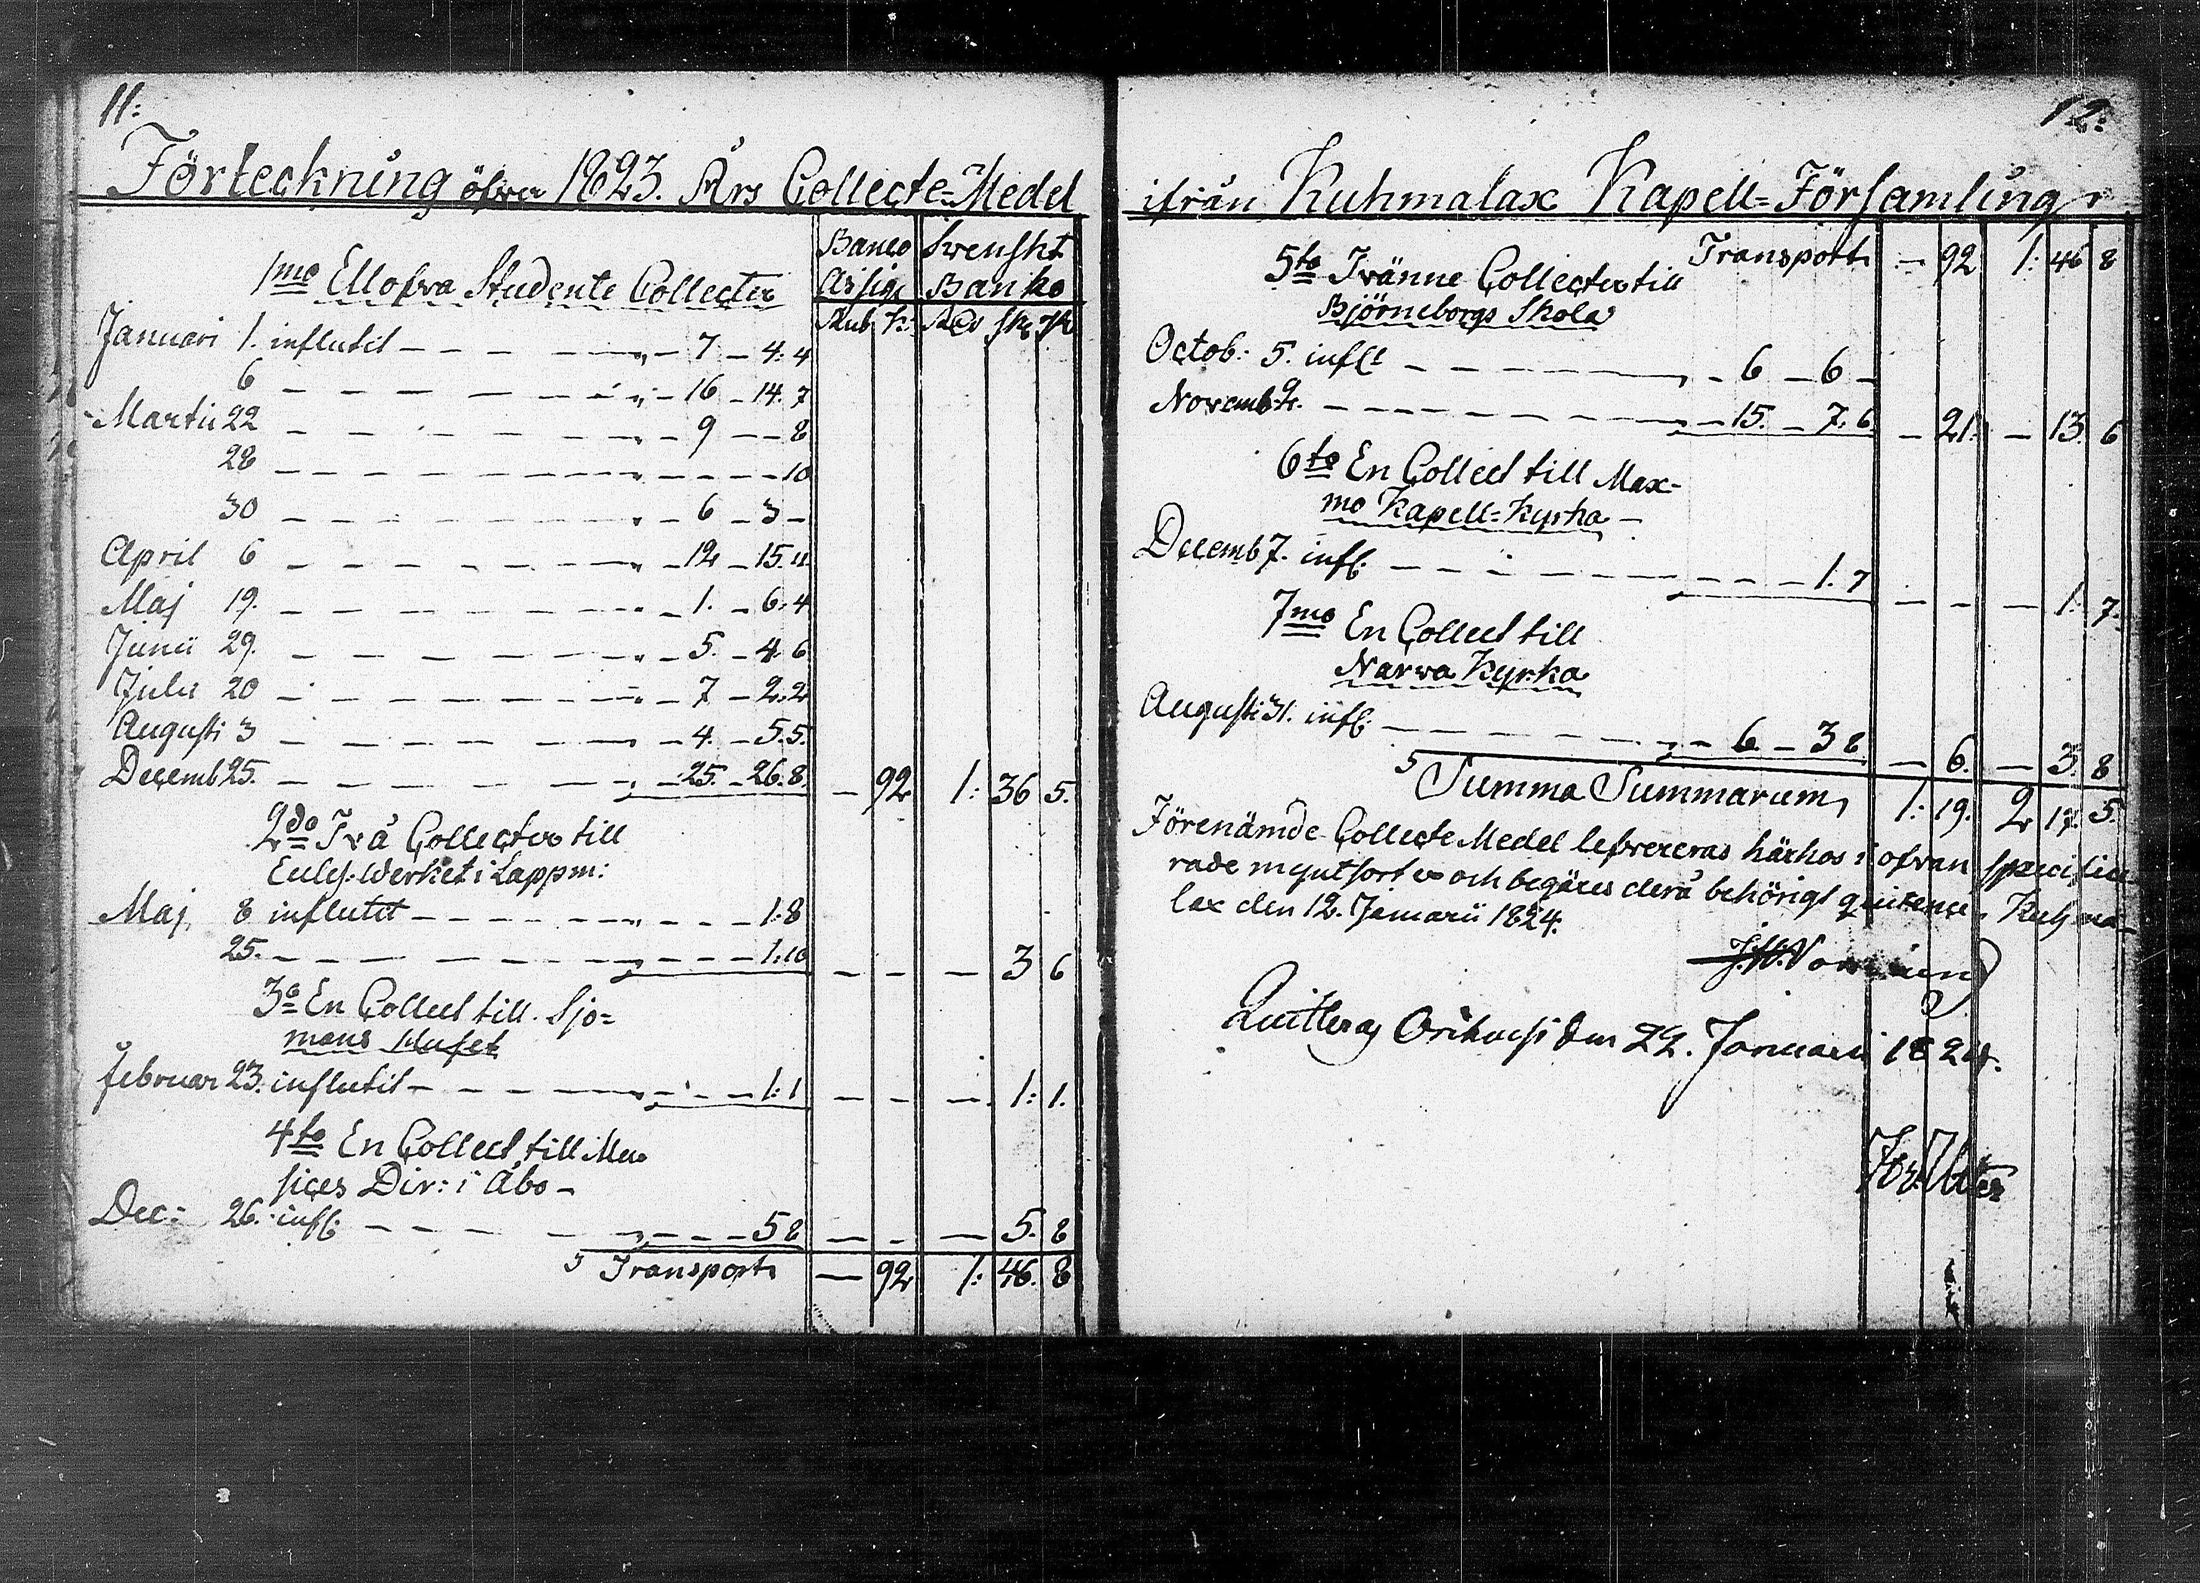 11:
Förteckning öfver 1823. Års Collecte-Medel
Banco Svenskt
1mo Ellofva Studente Collecter Assig: Banko
Rub K: Rds sk rst
Januari 1. influtit — — — — — „ — 7 — 4: 4
6 — — — — — „ — 16 — 14. 7
Martii 22 — — — — — „ — 9 — — 8
28 — — — — — „ — — — — 10
30 — — — — — „ — 6 — 3 —
April 6 — — — — — „ — 12 — 15. 11
Maj 19. — — — — — „ — 1. — 6: 4
Junii 29. — — — — — „ — 5. — 4. 6
Julii 20 — — — — — „ — 7 — 2. 2
Augusti 3 — — — — — „ — 4. — 5. 5.
Decemb 25. — — — — — „ — 25. — 26. 8. — 92 1: 36 5.
2do Två Collecter till
Eccles: Werket i Lappm:
Maj 8 influtit — — — — „ — — — 1: 8
25. — — — — — — — — 1. 10 — — — 3 6
3o En Collect till Sjö=
mans Huset
Februar 23. influtit — — — — — — 1: 1 — — — 1: 1.
4to En Collect till Mu=
sices Dir: i Åbo —
Dec: 26. infl: — — — — — — — 5 8 — — — 5. 8
Transport — 92 1: 46. 8
12.
ifrån Kuhmalax Kapell=Församling
Transport — 92 1: 46 8
5to Tvänne Collecter till
Björneborgs Skola
Octob: 5. inflt — — — — — — 6 — 6 —
Novemb. 2. — — — — — — 15. — 7. 6. — 21. — 13. 6
6to En Collect till Max=
mo Kapell=Kyrka —
Decemb 7. infl: — — — — — — — 1. 7 — — — 1. 7.
7mo En Collect till
Narva Kyrka
Augusti 31. infl: — — — — — — 6. — 3 8 — 6. — 3. 8
Summa Summarum, 1: 19. 2 17. 5.
Förenämde Collecte Medel lefvereras härhos i ofvan specifice-
rade myntsorter och begäres derå behörigt quitence. Kuhma-
lax den 12. Januarii 1824.
Quitteras Orihvesi den 22. Januari 1824.